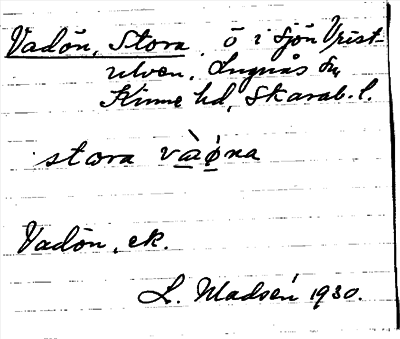 Vadön, Stora ö i sjön Vrist-
ulven, Lugnås sn,
Kinne hd, Skarab. l.
stora và̱ǿ̱na
Vadön, ek.
L. Madsén 1930.